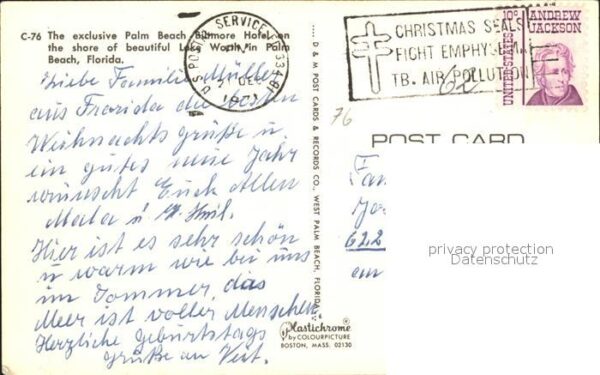 C-76 The exclusive Palm Beach Biltmore Hotel on
the shore of beautiful Lake Worth in Palm
Beach, Florida.
Liebe Familie Müller
aus Florida die besten
Weihnachts grüße u.
ein gutes neue Jahr
wünscht Euch Allen
Mala u.
Hier ist es sehr schön
u warm wie bei uns
im Sommer, das
Meer ist voller Menschen.
Herzliche Geburtstags
grüße an Veit.
U.S. POSTAL SERVICE
DEC
CHRISTMAS SEALS
FIGHT EMPHYSEMA
TB. AIR POLLUTION
10c ANDREW
JACKSON
UNITED STATES
62
76
D & M POST CARDS & RECORDS CO., WEST PALM BEACH, FLORIDA
POST CARD
Fam
622
privacy protection
Datenschutz
Plastichrome
by COLOURPICTURE
BOSTON, MASS. 02130